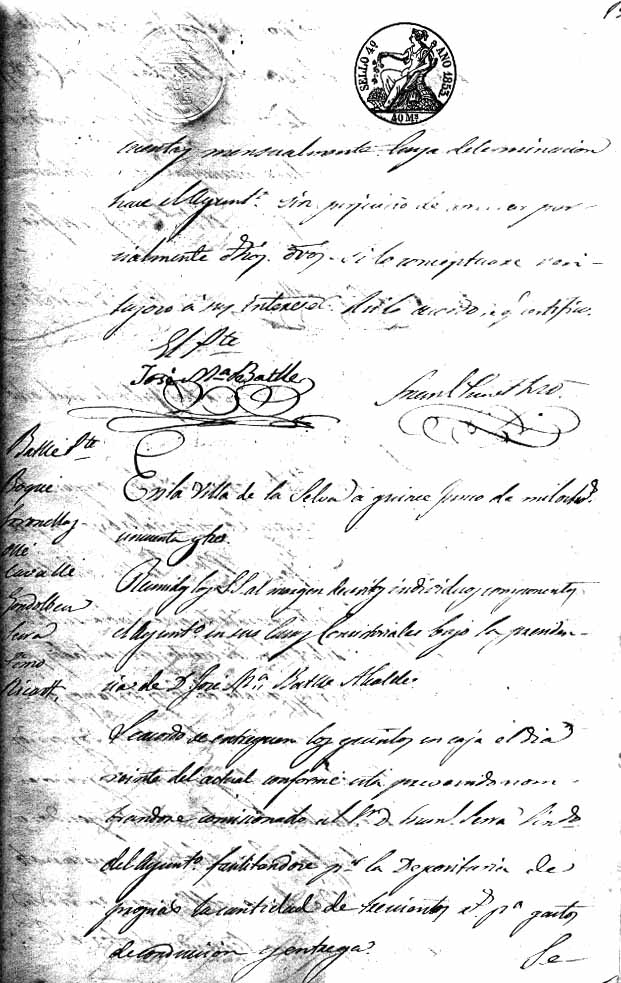 SELLO 4º AÑO 1853.
40 Ms.
cuentas mensualmente. Cuya determinacion
hace el Ayuntº. sin perjuicio de por-
cialmente dhos. si lo conceptuare ven-
tajoso á sus intereses. Asi lo acordó, que certifico.
El Pte
José Mª Batlle
Batlle Pte
Boqué
Cavallé
Serra
Ricart
En la Villa de la Selva á quince Junio de mil ochos.
cincuenta y tres.
Reunidos los SS. al margen descritos individuos componentes
el Ayuntº en sus Casas Consistoriales bajo la presiden-
cia de D. José Mª Batlle Alcalde.
Se acordó se entreguen los quintos en caja el dia
veinte del actual conforme está prevenido nom-
brandose comisionado al Sr. D. Juan Serra Sindº
del Ayuntº. facilitandose pr. la Depositaria de
propios la cantidad de pª gastos
de conduccion y entrega.
Se-